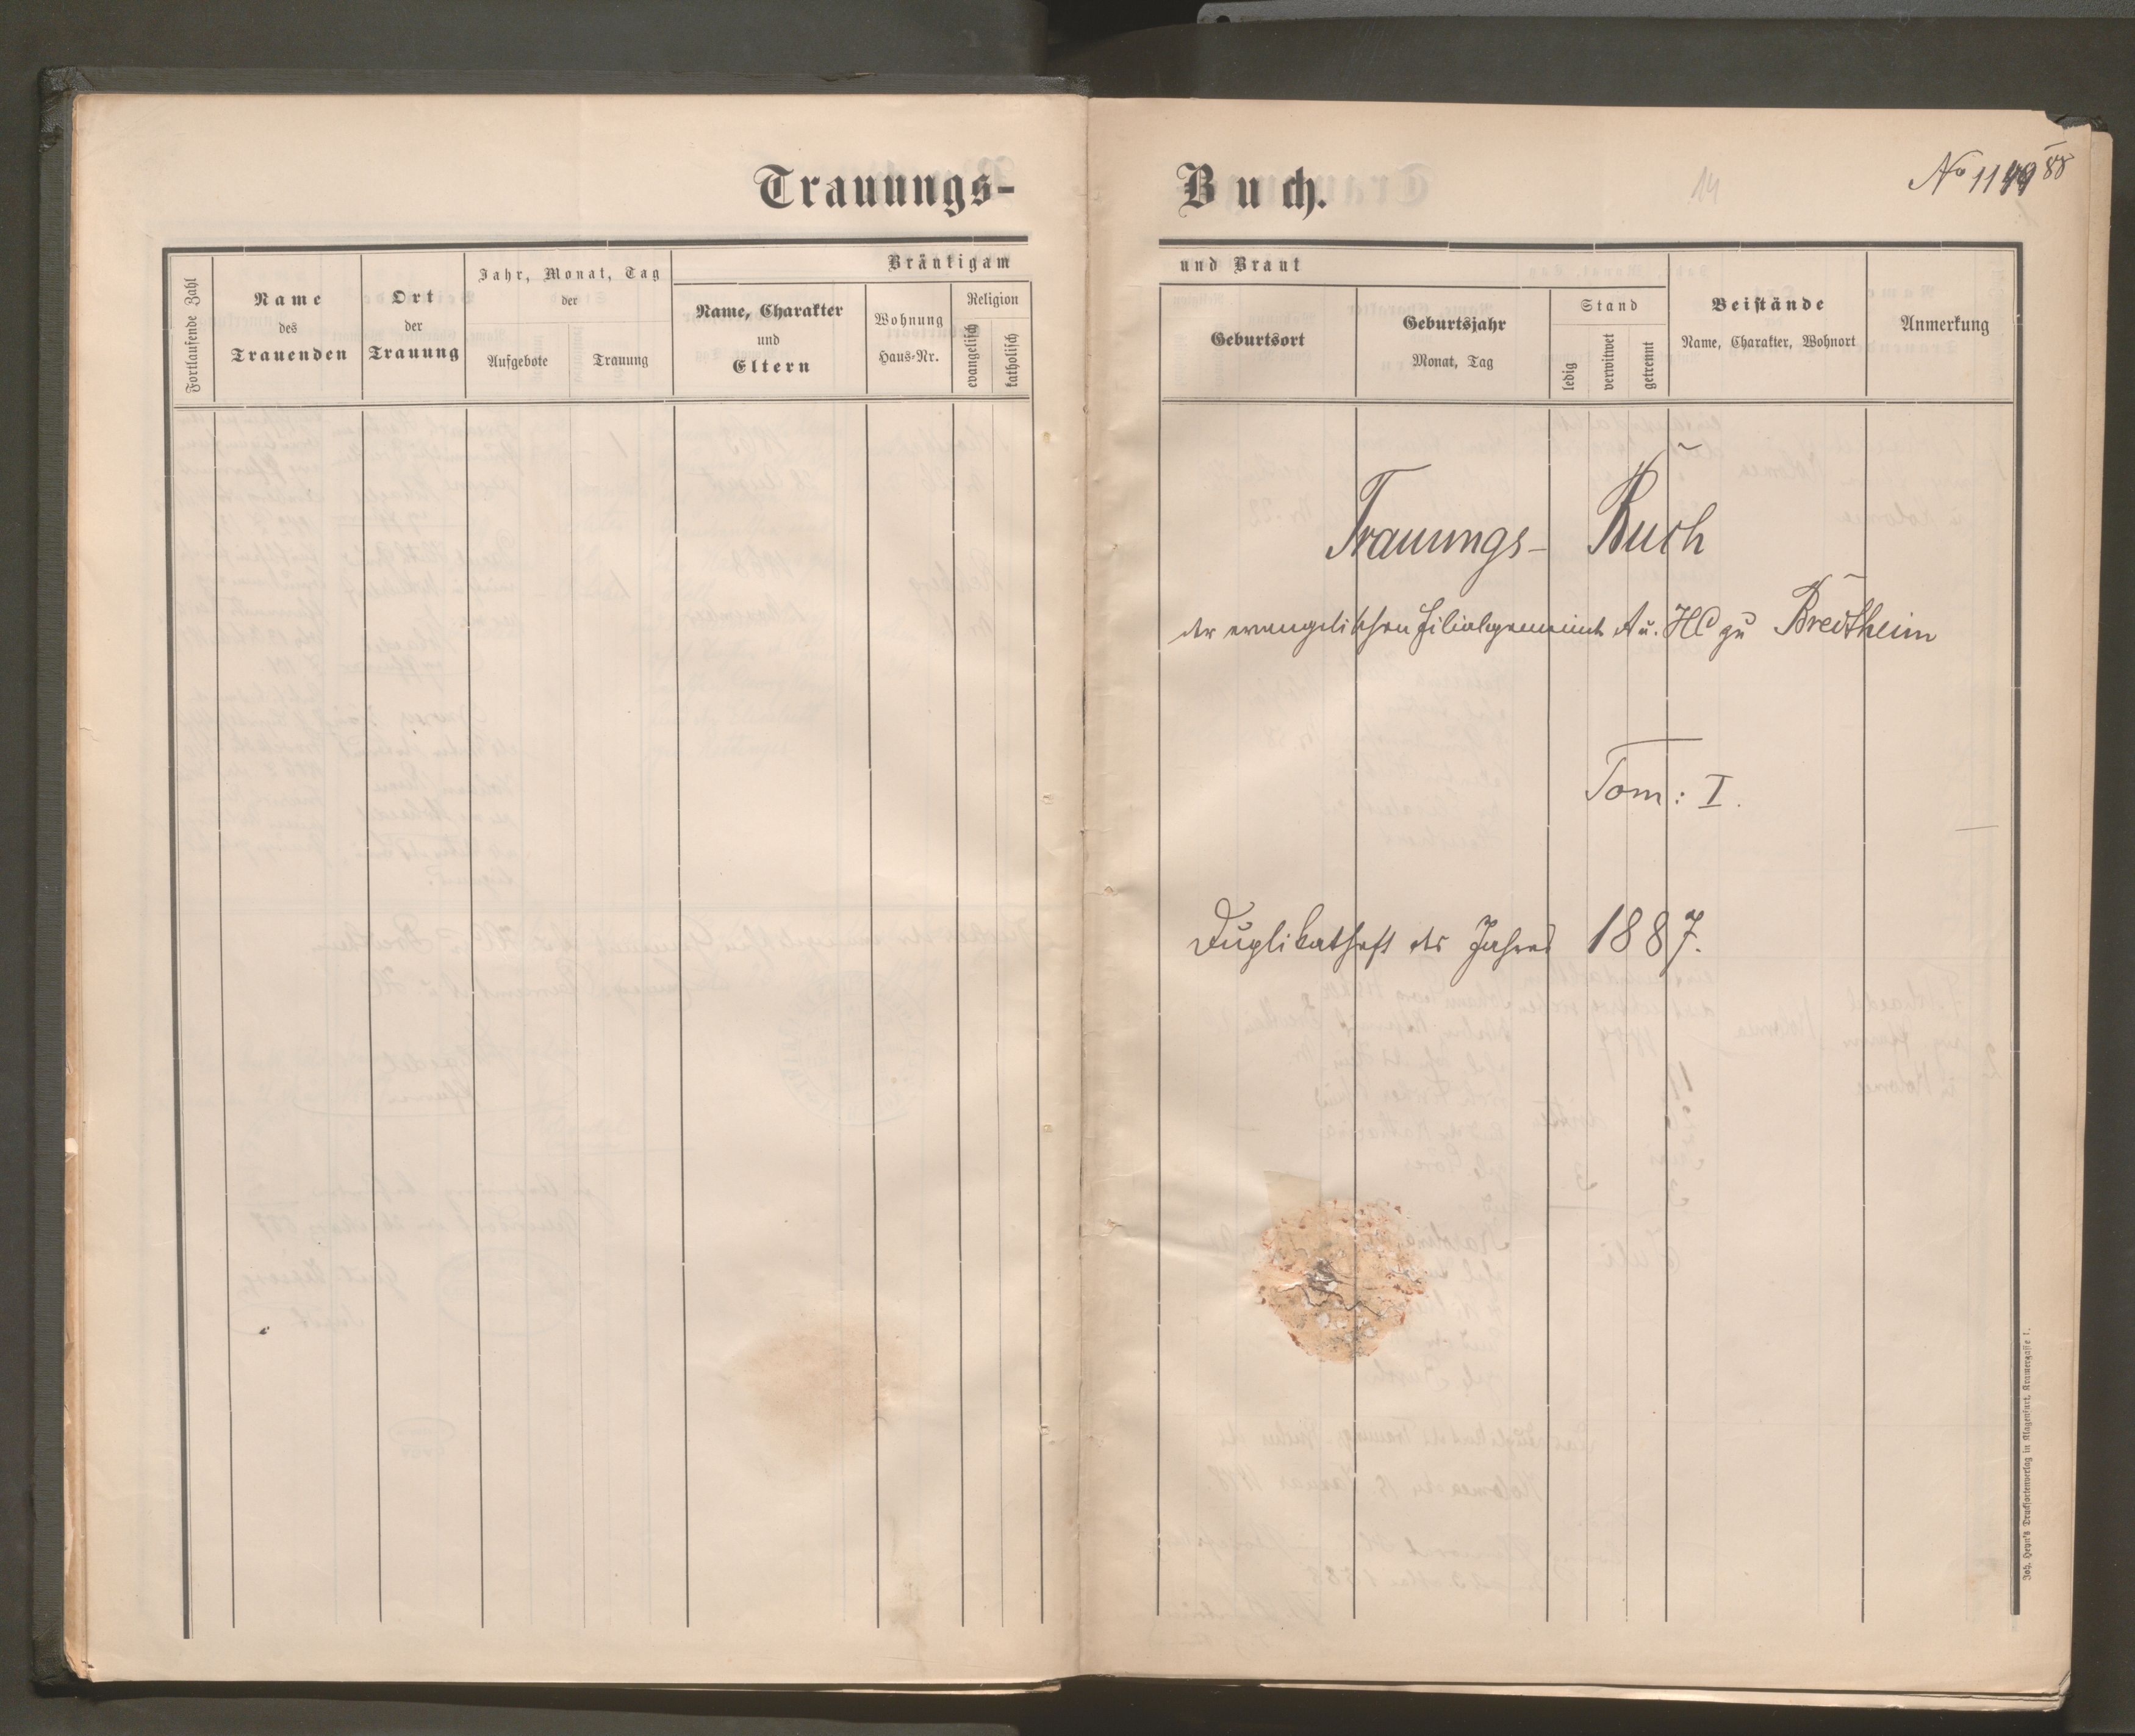 Trauungs-
Fortlaufende Zahl
Name
des
Trauenden
Ort
der
Trauung
Jahr, Monat, Tag
der
Aufgebote
Trauung
Bräutigam
Name, Charakter
und
Eltern
Wohnung
Haus-Nr.
Religion
evangelisch
katholisch
Buch.
14
No 1149
88
und Braut
Geburtsort
Geburtsjahr
Monat, Tag
Stand
ledig
verwitwet
getrennt
Beistände
Name, Charakter, Wohnort
Anmerkung
Trauungs- Buch
der evangelischen Filialgemeinde A u. HC zu Breitheim
Tom: I.
Duplikatheft des Jahres 1887.
Joh. Heyn's Drucksortenverlag in Klagenfurt, Kramergasse 1.